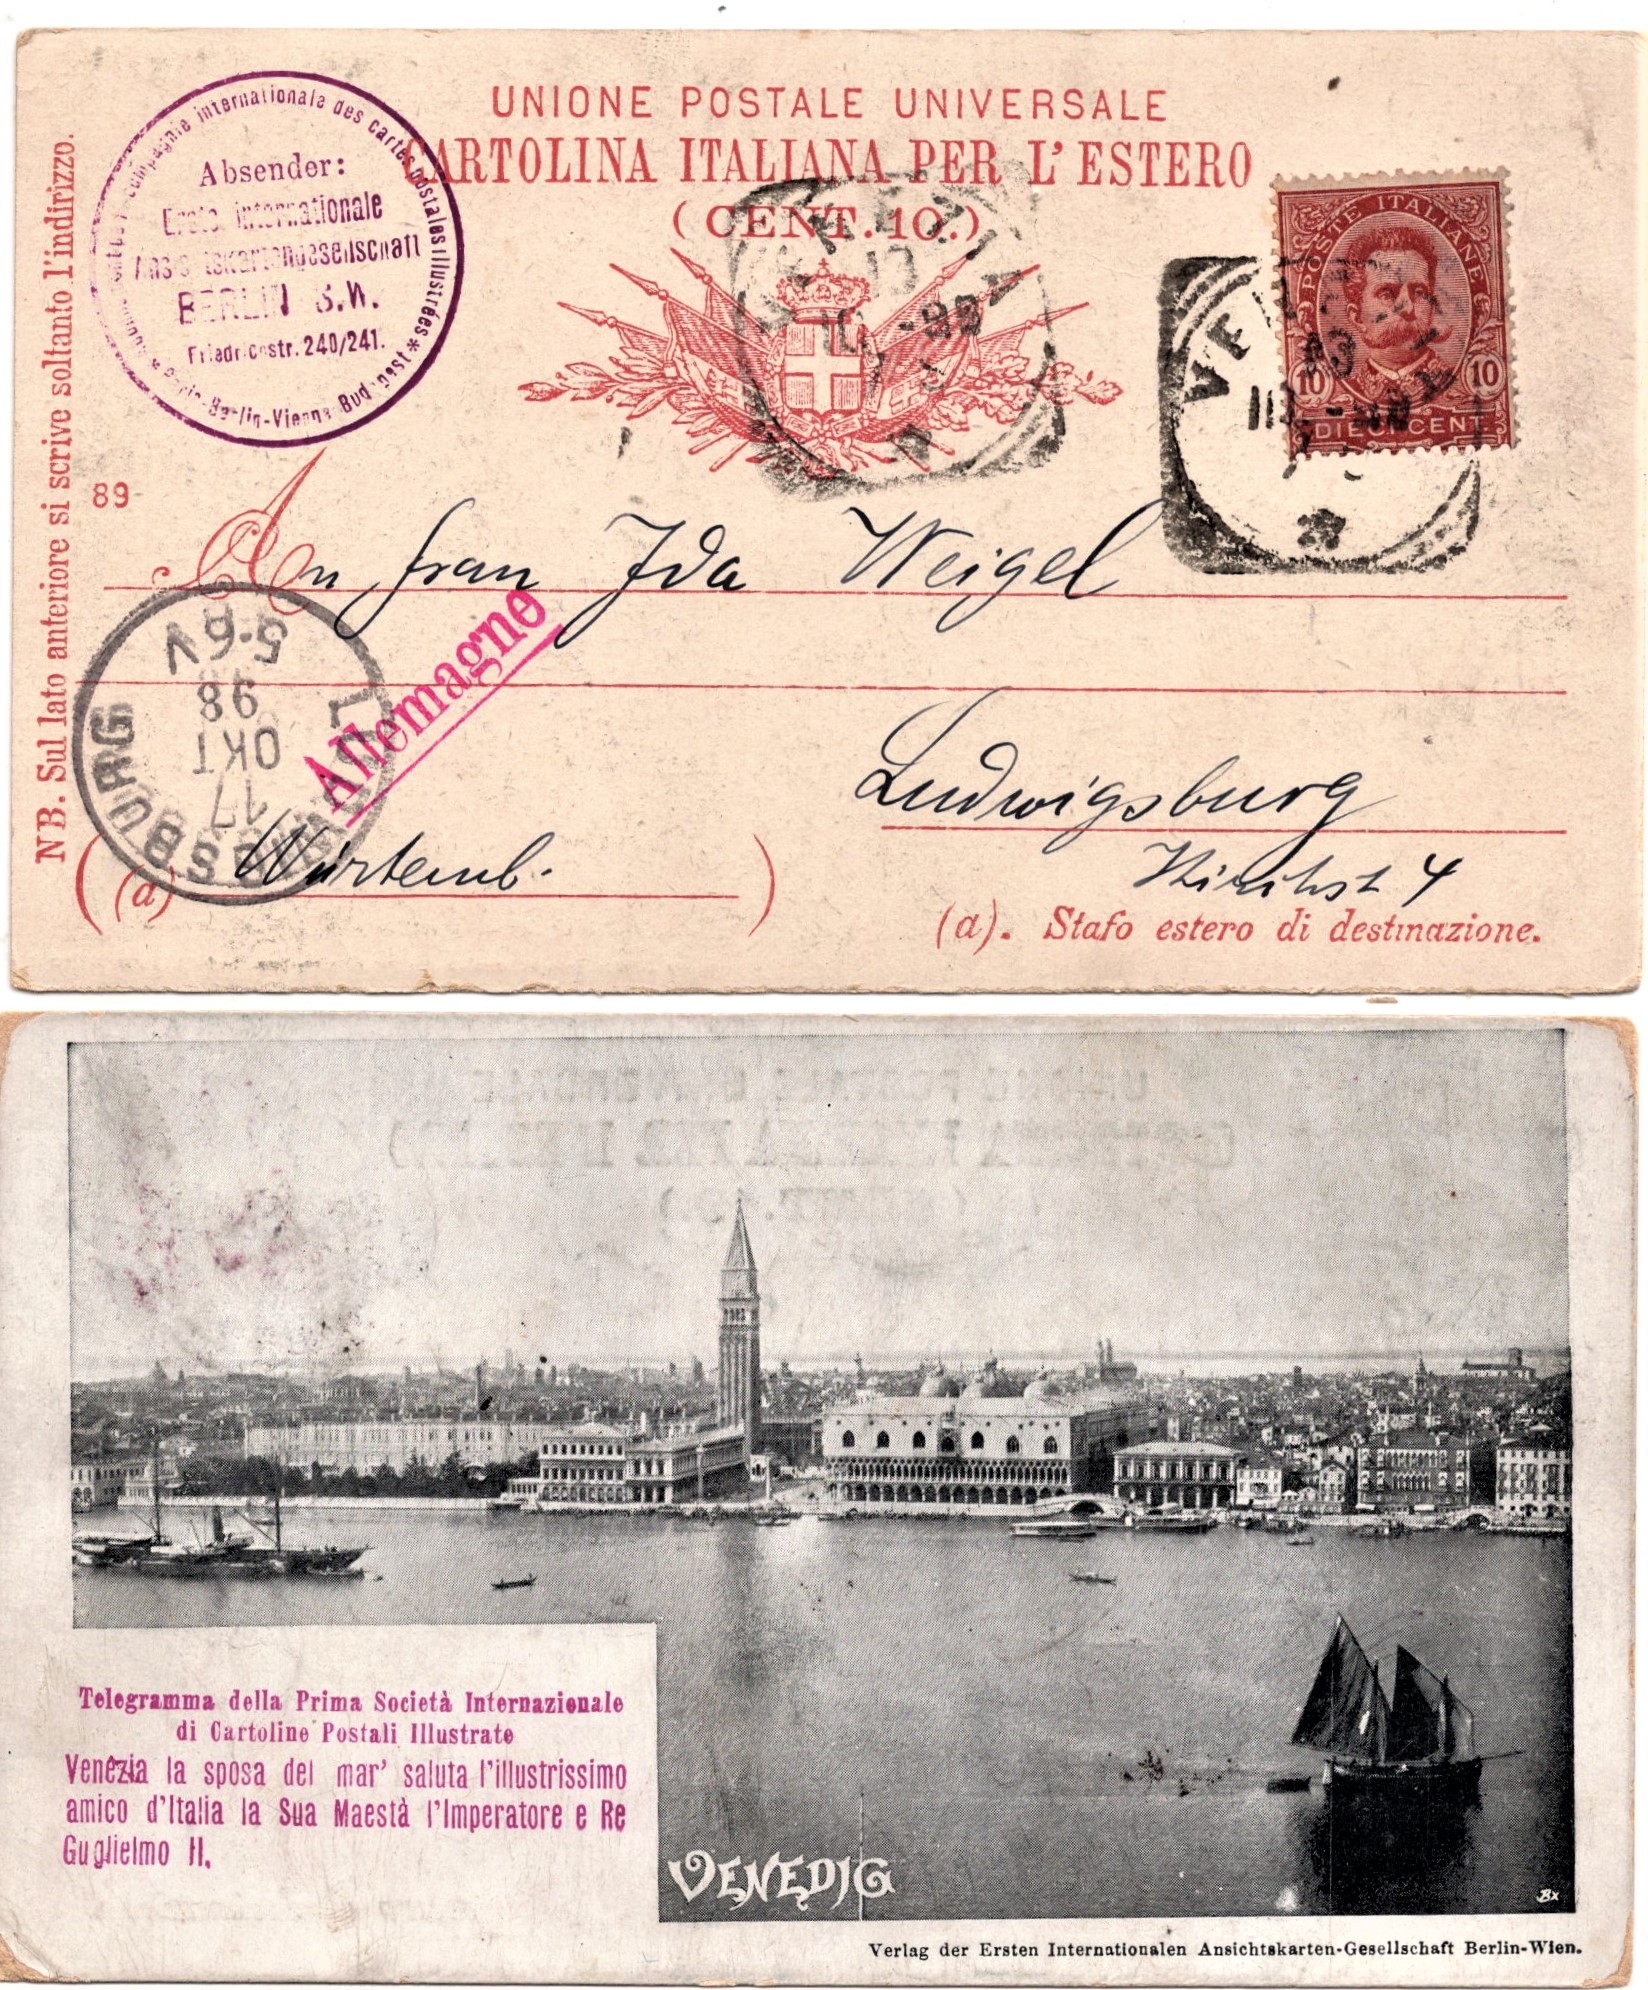 UNIONE POSTALE UNIVERSALE
CARTOLINA ITALIANA PER L'ESTERO
(CENT. 10.)
NB. Sul lato anteriore si scrive soltanto l'indirizzo.
Compagnie internationale des cartes postales illustrées * Paris-Berlin-Vienne-Budapest
Absender:
Erste internationale
Ansichtskartengesellschaft
BERLIN S.W.
Friedrichstr. 240/241.
POSTE ITALIANE
10 10
DIECI CENT.
VENEZIA
10 -98
VENEZIA
89
An Frau Ida Weigel
Allemagne
LUDWIGSBURG
17
OKT
98
5-6V
Ludwigsburg
Kirchst 4
(a) Würtemb.
(a). Stafo estero di destinazione.
Telegramma della Prima Società Internazionale
di Cartoline Postali Illustrate
Venezia la sposa del mar' saluta l'illustrissimo
amico d'Italia la Sua Maestà l'Imperatore e Re
Guglielmo II.
VENEDIG
Bx
Verlag der Ersten Internationalen Ansichtskarten-Gesellschaft Berlin-Wien.